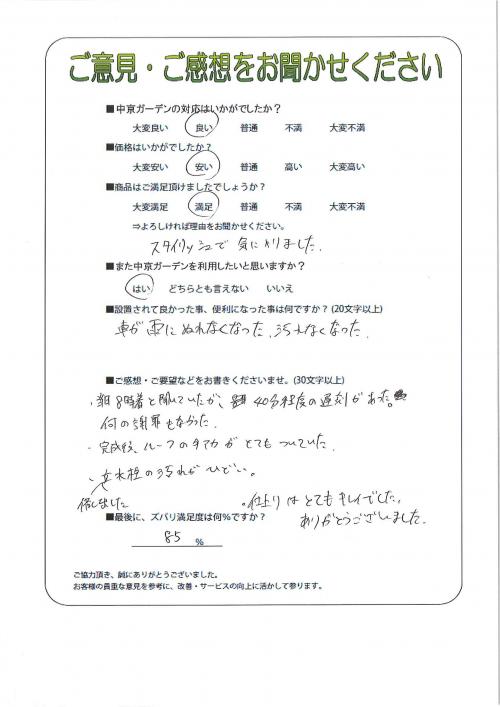 ご意見・ご感想をお聞かせください
■中京ガーデンの対応はいかがでしたか？
大変良い 良い 普通 不満 大変不満
■価格はいかがでしたか？
大変安い 安い 普通 高い 大変高い
■商品はご満足頂けましたでしょうか？
大変満足 満足 普通 不満 大変不満
⇒よろしければ理由をお聞かせください。
スタイリッシュで気に入りました。
■また中京ガーデンを利用したいと思いますか？
はい どちらとも言えない いいえ
■設置されて良かった事、便利になった事は何ですか？(20文字以上)
車が雨にぬれなくなった、汚れなくなった。
■ご感想・ご要望などをお書きくださいませ。(30文字以上)
・朝8時着と聞いていたが、40分程度の遅刻があった。
何の謝罪もなかった。
・完成後、ルーフのテアカがとてもついていた。
・立水栓の汚れがひどい。
。仕上りはとてもキレイでした。
ありがとうございました。
■最後に、ズバリ満足度は何%ですか？
85 %
ご協力頂き、誠にありがとうございました。
お客様の貴重な意見を参考に、改善・サービスの向上に活かして参ります。